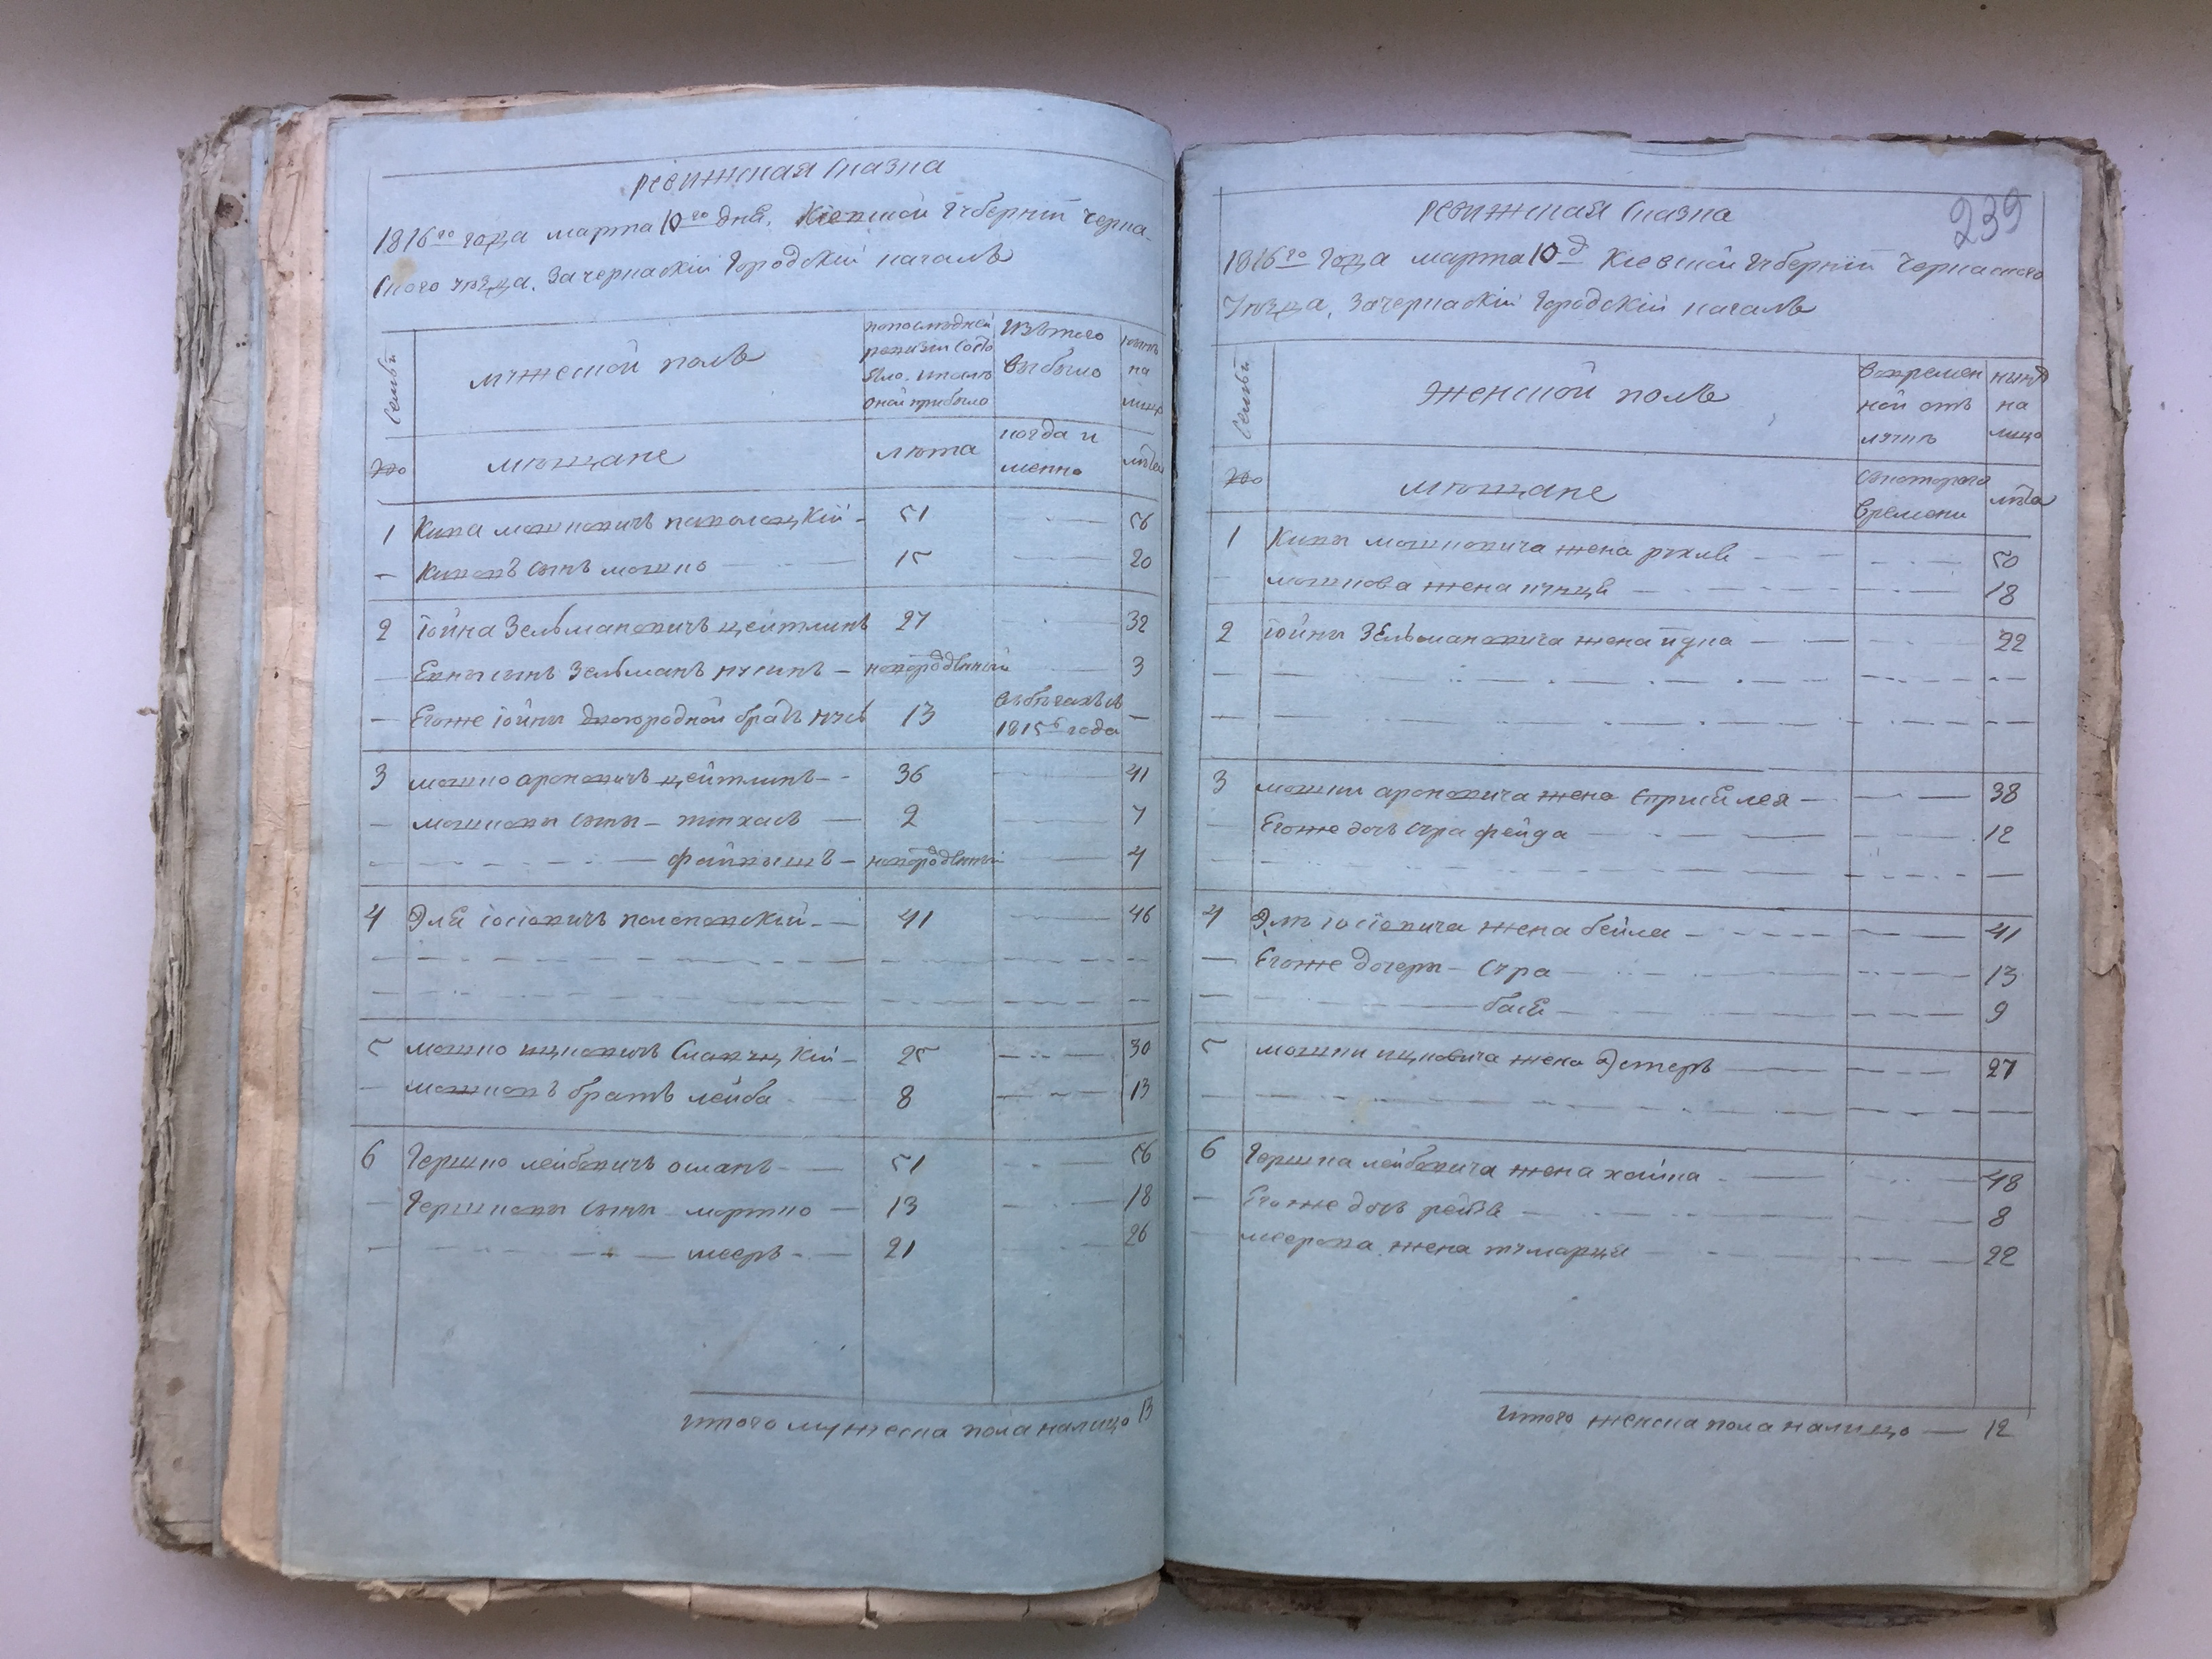 ревижская сказка
1816го года марта 10го дня, Кіевской губерніи черка-
ского уезда, Зачеркаскій городскій кагалъ
Семьи
мужеской полъ
попоследней
ревизіи состо
яло, ипослѣ
оной прибыло
Изътого
выбыло
нынѣ
на
лицо
№
мещане
лѣта
когда и
менно
лѣта
1 Кива мошковичъ паволоцкій - 51 - 56
- Кивовъ сынъ мошко - 15 - 20
2 Іойна Зельмановичъ цейтлинъ 27 - 32
- Евны сынъ Зельманъ нусинъ - новорожденный - 3
- Егоже Іойны двоюродной братъ нусь 13
1815го года
3 мошко ароновичъ цейтлинъ - 36 - 41
- мошковы сыны - пинхасъ - 2 - 7
файвышъ - новорожденный - 4
4 Эля Іосіовичъ полоновскій - 41 - 46
5 мошко ицковичъ Славуцкій - 25 - 30
- мошковъ братъ лейба - 8 - 13
6 Гершко лейбовичъ - 51 - 56
- Гершковы сыны мортко - 13 - 18
- мееръ - 21 - 26
итого мужеска пола налицо 13
239
ревижская сказка
1816го года марта 10д Кіевской губерніи Черкаского
Уезда, Зачеркаскій городскій кагалъ
Семьи
Женской полъ
вовремен
ной отъ
лучке
нынѣ
на
лицо
№
мещане
скоторого
времени
лѣта
1 Кивы мошковича жена рухля - 50
- мошкова жена - 18
2 Іойны Зельмановича жена - 22
3 мошки ароновича жена лея - 38
- Егоже дочь сура фейга - 12
4 Эли Іосіовича жена бейла - 41
- Егоже дочери - Сура - 13
- бася - 9
5 мошки ицковича жена Эстеръ - 27
6 Гершка лейбовича жена хайка - 48
- Егоже дочь рейзя - 8
меерова жена - 22
Итого женска пола налицо - 12